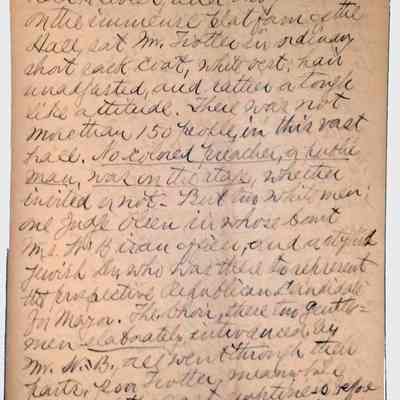 on the immense platform of the
Hall, sat Mr. Trotter in ordinary
short sack coat, white vest, hair
unadjusted, and rather a tough
like attitude. There was not
more than 150 people, in this vast
hall. No colored preacher, or public
man, was in the stage, whether
invited or not - But two white men;
one Judge Olsen in whose Court
Mrs. W. B is an officer, and a stylish
Jewish Lawyer who was there to represent
the prospective Republican Candidate
for Mayor. The Choir, these two gentle=
men elaborately introduced by
Mr. N. B., all went through their
parts, poor Trotter, meanwhile